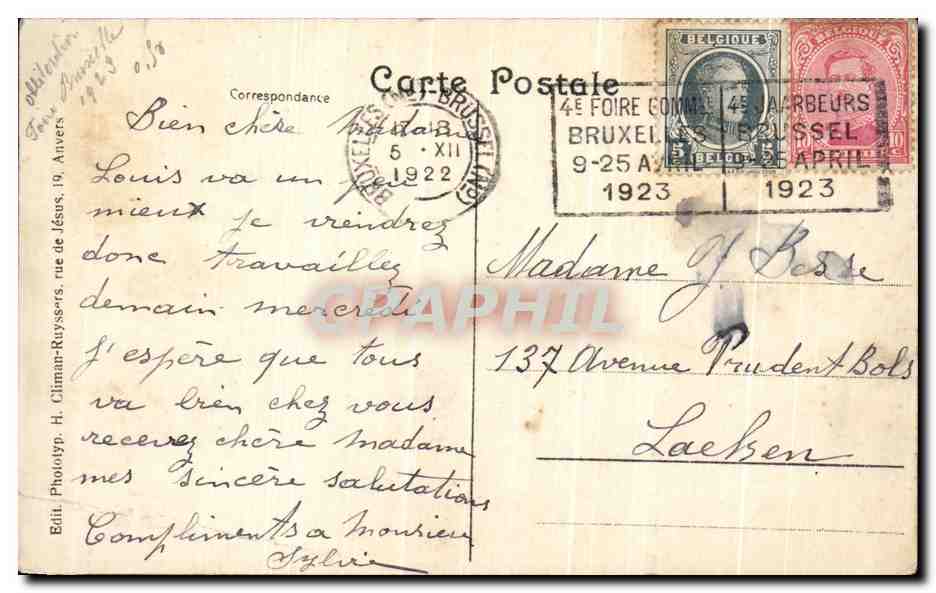 Carte Postale
Correspondance
Bien chère Madame
Louis va un peu
mieux je viendrez
donc travaillez
demain mercredi
J'espère que tous
va bien chez vous
recevez chère Madame
mes sincère salutations
Compliments a Monsieur
Sylvie
BRUXELLES BRUSSEL
5 XII
1922
4E FOIRE COMM
BRUXELLES
9-25 AVRIL
1923
4E JAARBEURS
BRUSSEL
9-25 APRIL
1923
BELGIQUE
5 BELGIË 5
BELGIQUE
10 10
Madame J Besse
137 Avenue Prudent Bols
Laeken
Edit. Phototyp. H. Climan-Ruyssers, rue de Jésus, 19, Anvers
Bruxelle
1923
0,50
CPAPHIL